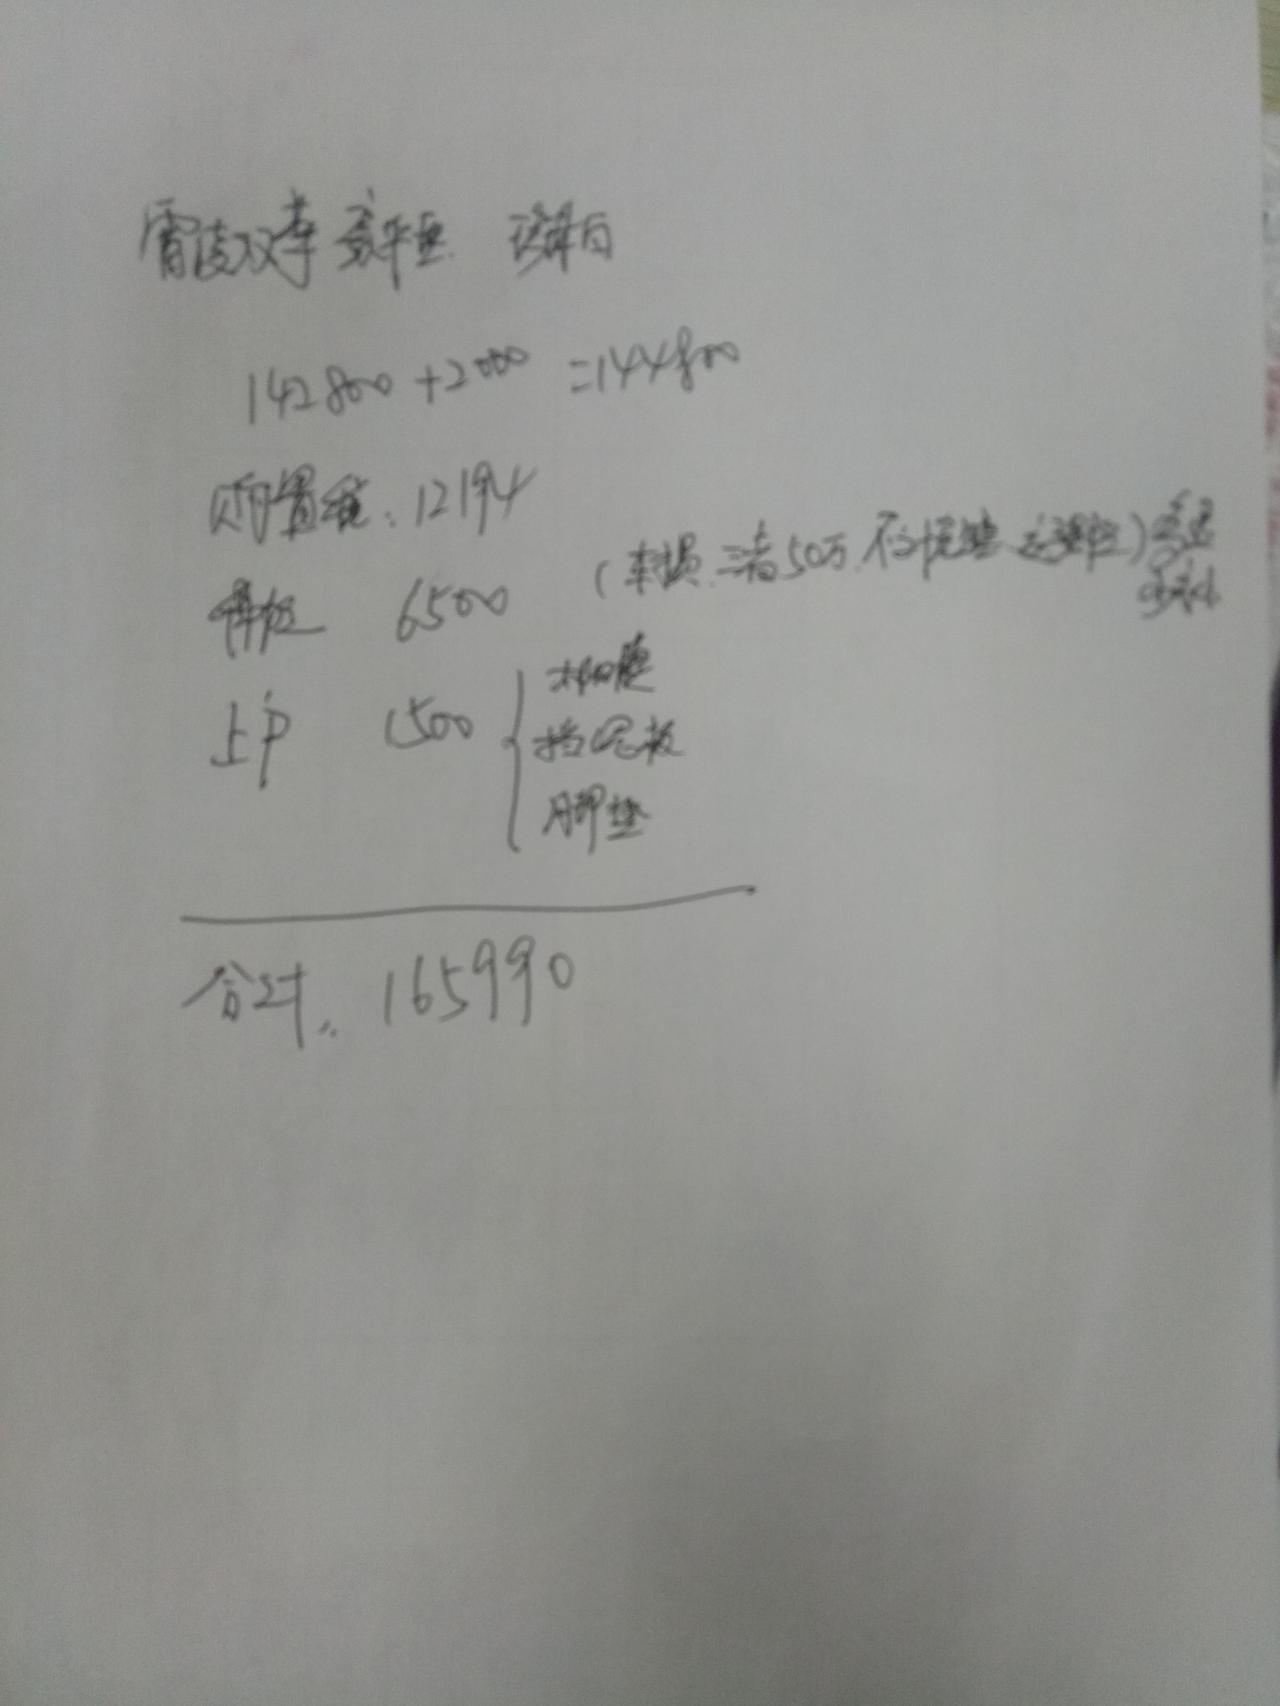 雷凌双擎 豪华版
142800+2000=144800
购置税:12194
保险 6500 (车损.三者50万.不计免赔 交强险)
上户 1500 { 太阳膜
挡泥板
脚垫
合计: 165990